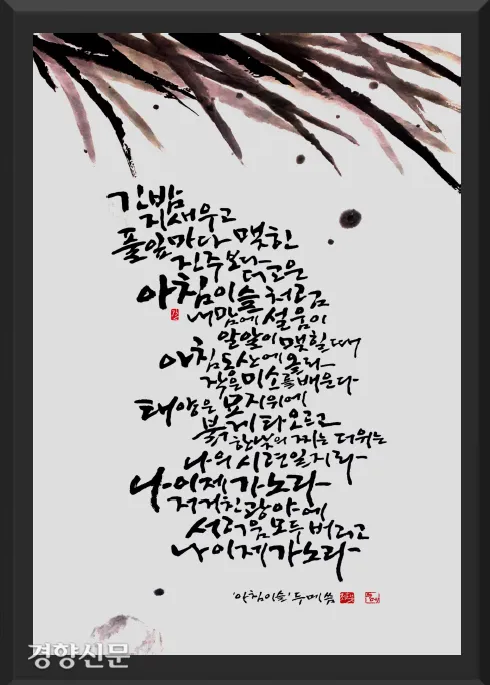 긴밤
지새우고
풀잎마다 맺힌
진주보다
더고운
아침이슬처럼
내맘에 설움이
알알이 맺힐때
아침동산에 올라
작은미소를배운다
태양은 묘지위에
붉게 타오르고
한낮의 찌는 더위는
나의 시련일지라
나 이제 가노라
저거친 광야에
서러움 모두 버리고
나 이제 가노라
'아침이슬' 두메 씀
경향신문